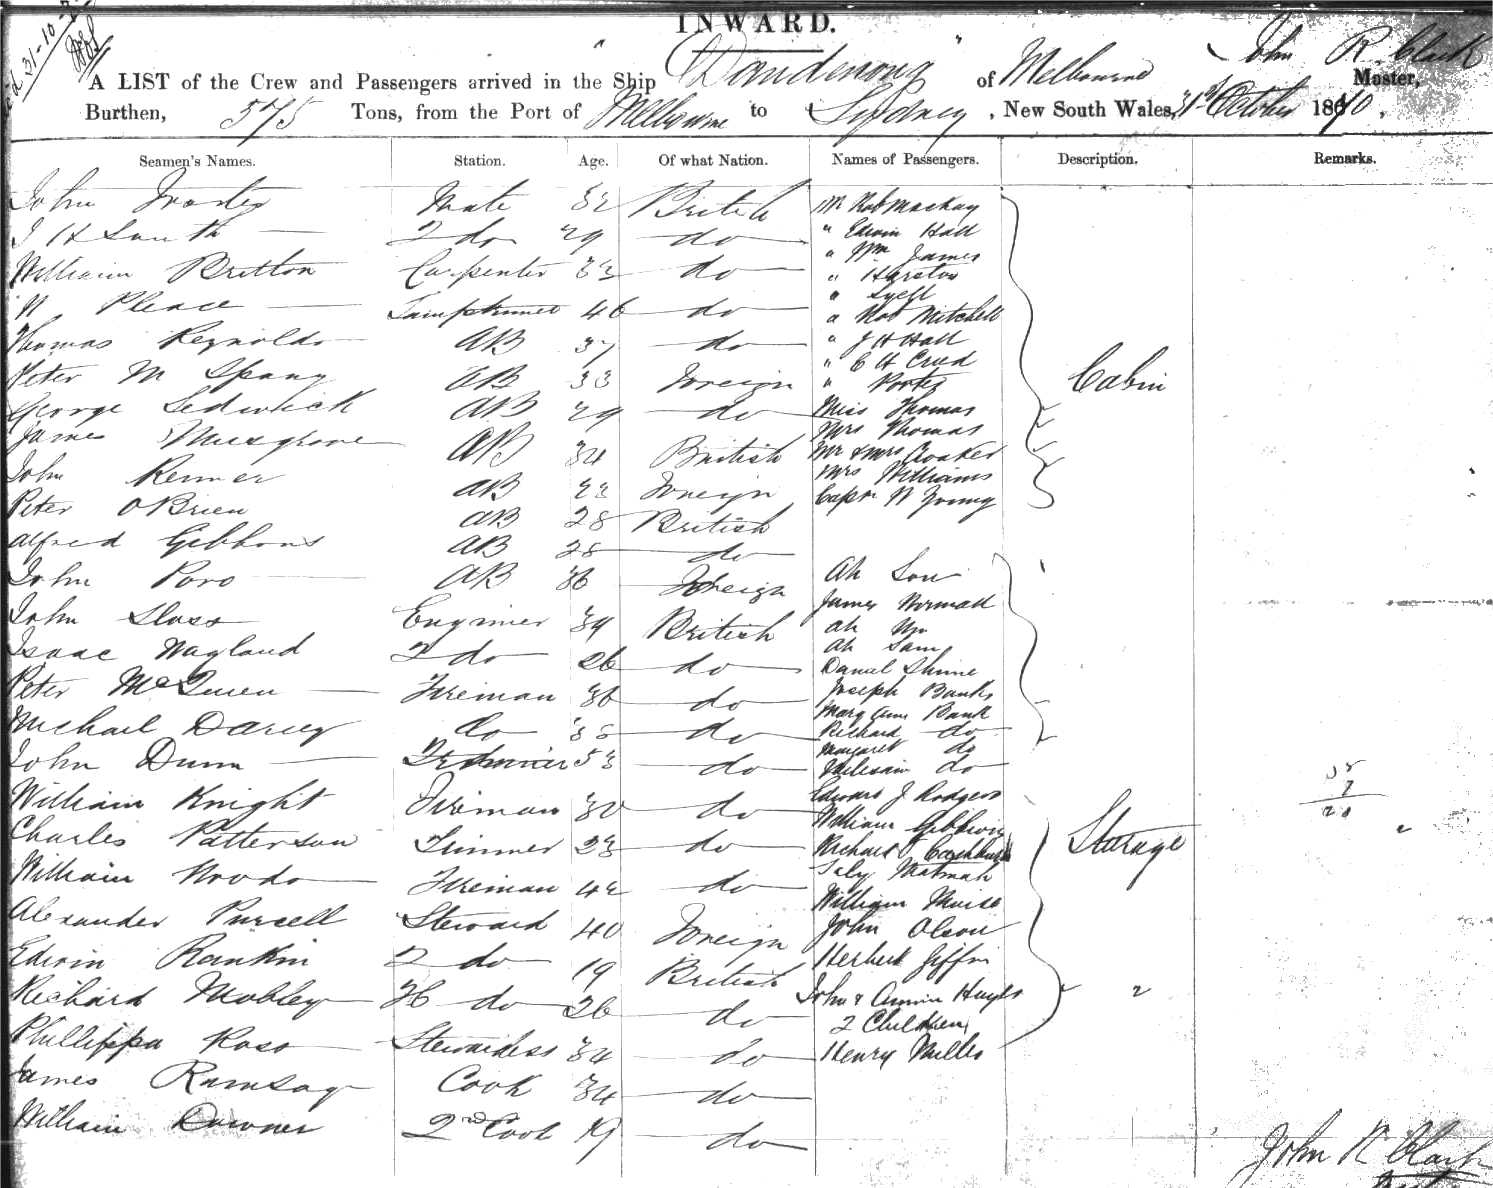 INWARD.
A LIST of the Crew and Passengers arrived in the Ship "Dandenong" of Melbourne John R. Clark Master,
Burthen, 575 Tons, from the Port of Melbourne to Sydney, New South Wales, 31st October 1870.
Seamen's Names. Station. Age. Of what Nation. Names of Passengers. Description. Remarks.
John Mate 32 British Mr Rob Mackay
J H South 2 do 29 do " Edwin Hall
William Britton Carpenter 33 do " Wm James
" Harston
N Pleace 46 do " Lyell
" Rob Mitchell
Thomas Reynolds AB 37 do " J H Hall
" C H
Peter M Spany AB 33 Foreign " Porter
Cabin
George Sedwick AB 29 do Miss Thomas
Mrs Thomas
James Musgrove AB 34 British Mr & Mrs Croaker
John Renner AB 22 Foreign Mrs Williams
Capn N Young
Peter OBrien AB 28 British
Alfred Gibbons AB 28 do
John Poro AB 36 Foreign Ah Sow
John Sloss Engineer 39 British James
Ah
Isaac Wayland 2 do 26 do Ah Sam
Daniel Shine
Peter McQueen Fireman 36 do Joseph Banks
Mary Ann Bank
Michael Darcey do 38 do Richard do
Margaret do
John Dunn 53 do do
William Knight Fireman 30 do Edward J Rodgers
William Gibbons
Charles Patterson Trimmer 23 do Richard
Sterage
William Woods Fireman 42 do
William
Alexander Purcell Steward 40 Foreign John Olson
Edwin Rankin 2 do 19 British Herbert Giffin
Richard Mobley do 26 do John & Annie Hughs
2 Children
Phillippa Ross Stewardess 34 do Henry Miller
James Ramsay Cook 34 do
William Downer 2nd Cook 19 do
John R Clark